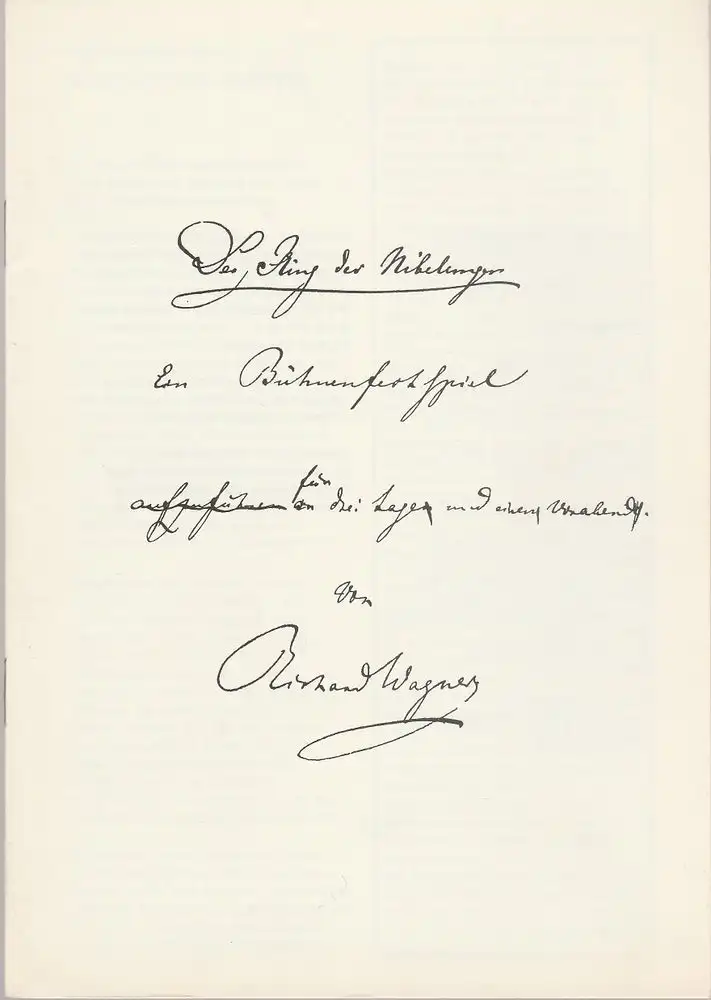 Der Ring des Nibelungen
Ein Bühnenfestspiel
für
aufzuführen an drei Tagen und einem Vorabend.
von
Richard Wagner